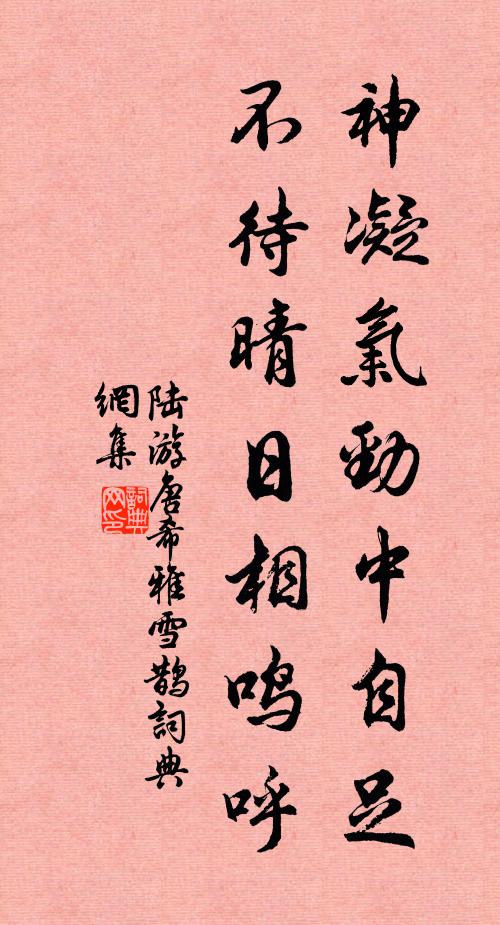 神凝氣勁中自足
不待晴日相鳴呼
陆游唐希雅雪鹊詞典
網集
詞典
网印